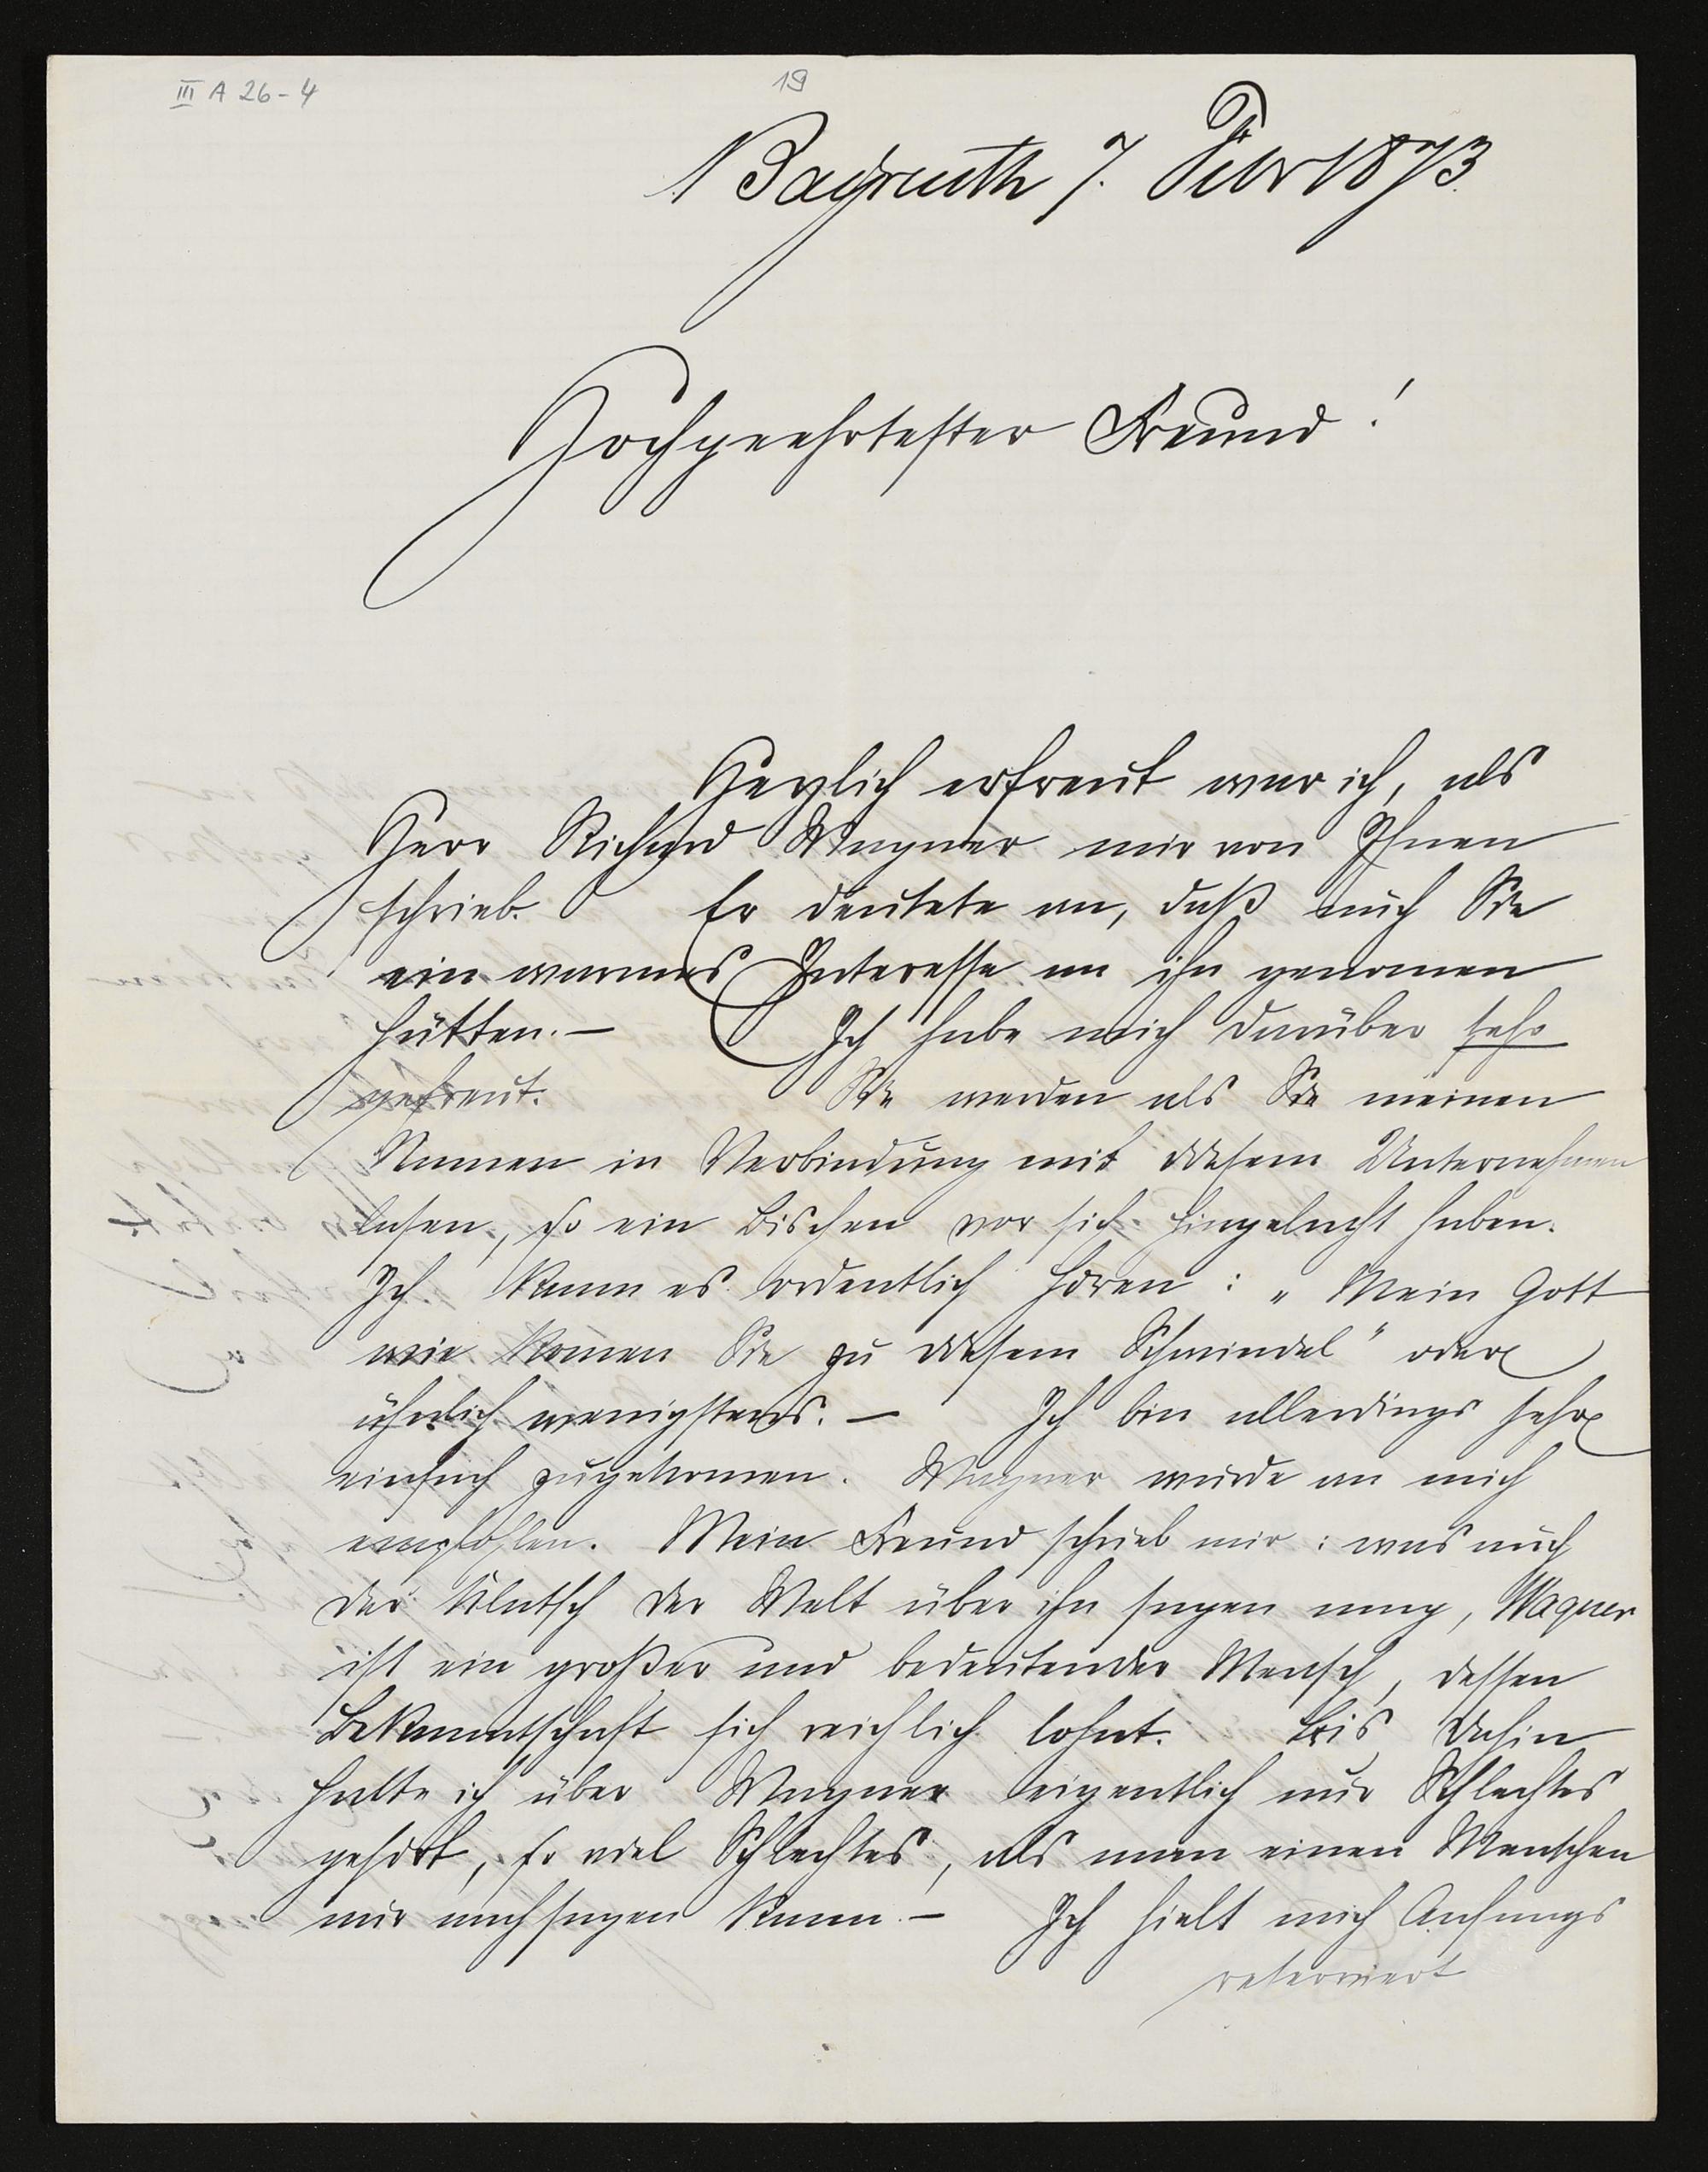 III A 26-4
19
Bayreuth 7. Febr 1873.
Hochgeehrtester Freund!
Herzlich erfreut war ich, als
Herr Richard Wagner mir von Ihnen
schrieb. Er deutete an, daß auch Sie
ein warmes Interesse an ihn genomen
hätten. — Ich habe mich darüber sehr
gefreut. Sie werden als Sie meinen
Namen in Verbindung mit diesem Unternehmen
lasen, so ein Bischen vor sich hingelacht haben.
Ich kann es ordentlich hören: „Mein Gott
wie komen Sie zu diesem Schwindel" oder
ähnlich wenigstens. — Ich bin allerdings sehr
einfach zugekomen. Wagner wurde an mich
empfohlen. Mein Freund schrieb mir: was auch
der Klatsch der Welt über ihn sagen mag, Wagner
ist ein großer und bedeutender Mensch, dessen
Bekanntschaft sich reichlich lohnt. Bis dahin
hatte ich über Wagner eigentlich nur Schlechtes
gehört, so viel Schlechtes, als man einen Menschen
nur nachsagen kann. — Ich hielt mich Anfangs
reserviert